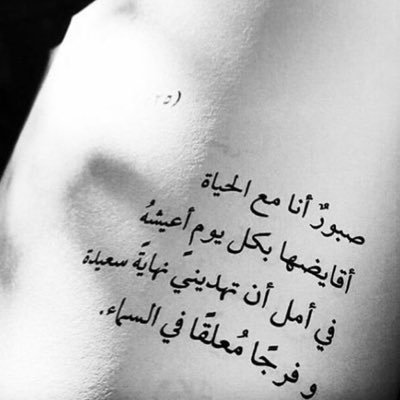 (٢٥)
صبورٌ أنا مع الحياة
أقايضها بكل يوم أعيشهُ
في أمل أن تهديني نهايةً سعيدة
و فرجًا مُعلقًا في السماء.